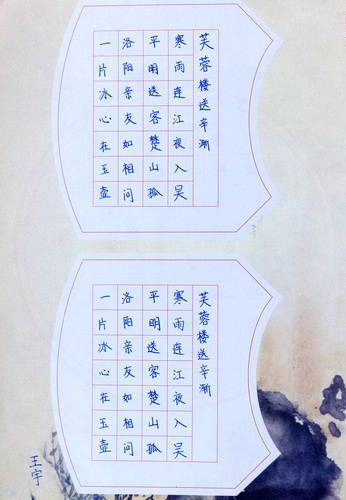 芙蓉楼送辛渐
寒雨连江夜入吴
平明送客楚山孤
洛阳亲友如相问
一片冰心在玉壶
芙蓉楼送辛渐
寒雨连江夜入吴
平明送客楚山孤
洛阳亲友如相问
一片冰心在玉壶
王宇